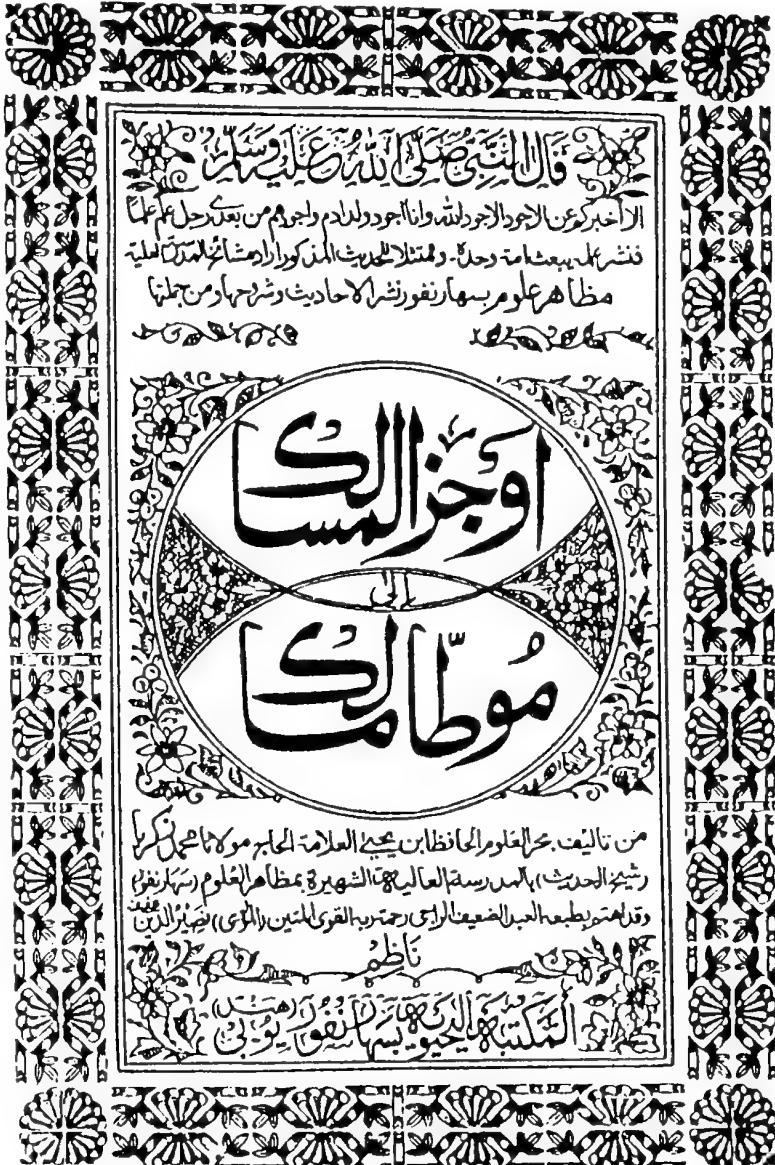 قال النبي صلى الله عليه وسلم
الا اخبركم عن الاجود الاجود الله وانا اجود ولد ادم واجودهم من بعدى رجل علم علمًا
فنشر علمه يبعث امة وحدة۔ وممتثلا للحديث المذكور اراد مشائخ المدرسة العلية
مظاهر علوم بسهارنفور نشر الاحاديث وشروحها ومن جملتها
اوجز المسالك
إلى
موطا مالك
من تاليف بحر العلوم الحافظ ابن يحيى العلامة الحاج مولانا محمد زكريا
(شيخ الحديث) بالمدرسة العالية الشهيرة بمظاهر العلوم (سهارنفور)
وقد اهتم بطبعه العبد الضعيف الراجى رحمة ربه القوى المتين (المولوى) نصير الدين
ناظم
المكتبة اليحيوية بسهارنفور (هند) يوبى